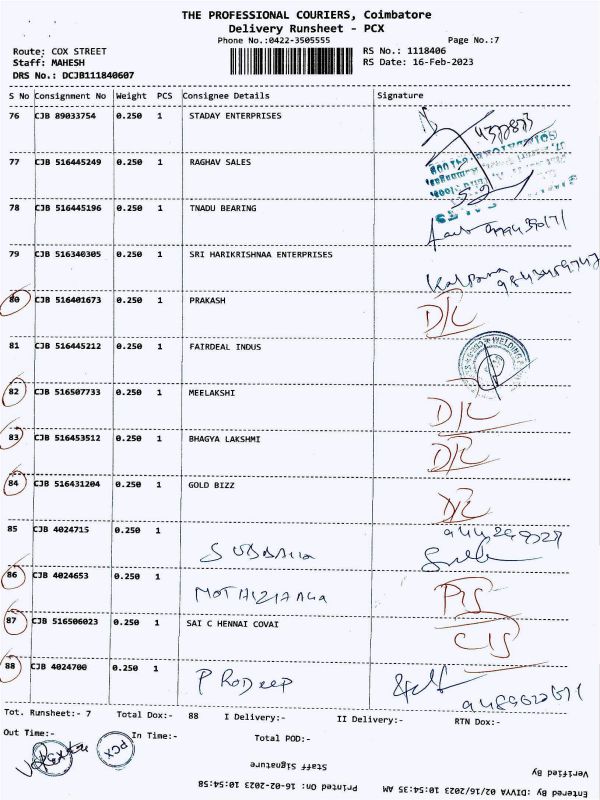 THE PROFESSIONAL COURIERS, Coimbatore
Delivery Runsheet - PCX
Phone No.:0422-3505555 Page No.:7
Route: COX STREET RS No.: 1118406
Staff: MAHESH RS Date: 16-Feb-2023
DRS No.: DCJB111840607
S No Consignment No Weight PCS Consignee Details Signature
76 CJB 89033754 0.250 1 STADAY ENTERPRISES
77 CJB 516445249 0.250 1 RAGHAV SALES
78 CJB 516445196 0.250 1 TNADU BEARING
79 CJB 516340305 0.250 1 SRI HARIKRISHNAA ENTERPRISES Kalpana
80 CJB 516401673 0.250 1 PRAKASH D/L
81 CJB 516445212 0.250 1 FAIRDEAL INDUS WELDING
82 CJB 516507733 0.250 1 MEELAKSHI D/L
83 CJB 516453512 0.250 1 BHAGYA LAKSHMI D/L
84 CJB 516431204 0.250 1 GOLD BIZZ D/L
85 CJB 4024715 0.250 1
86 CJB 4024653 0.250 1
87 CJB 516506023 0.250 1 SAI C HENNAI COVAI
88 CJB 4024700 0.250 1 PRODEEP
Tot. Runsheet:- 7 Total Dox:- 88 I Delivery:- II Delivery:- RTN Dox:-
Out Time:- In Time:- Total POD:-
PCX
Staff Signature
Verified By
Printed On: 16-02-2023 10:54:58
Entered By: DIVYA 02/16/2023 10:54:35 AM